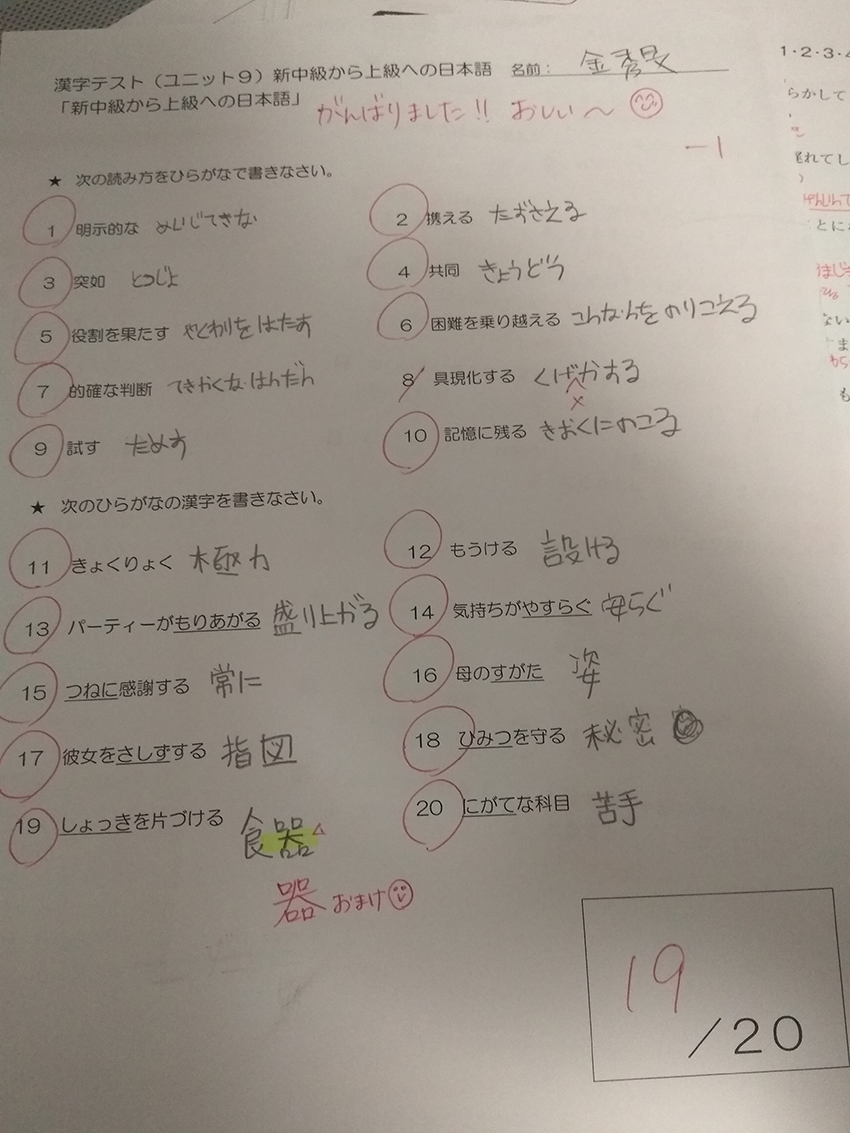 漢字テスト（ユニット９）新中級から上級への日本語 名前：金秀旻
「新中級から上級への日本語」 がんばりました!! おしい〜
－1
★ 次の読み方をひらがなで書きなさい。
1 明示的な めいじてきな
2 携える たずさえる
3 突如 とつじょ
4 共同 きょうどう
5 役割を果たす やくわりをはたす
6 困難を乗り越える こんなんをのりこえる
7 的確な判断 てきかくな はんだん
8 具現化する くげかする
×
9 試す ためす
10 記憶に残る きおくにのこる
★ 次のひらがなの漢字を書きなさい。
11 きょくりょく 極力
12 もうける 設ける
13 パーティーがもりあがる 盛り上がる
14 気持ちがやすらぐ 安らぐ
15 つねに感謝する 常に
16 母のすがた 姿
17 彼女をさしずする 指図
18 ひみつを守る 秘密
19 しょっきを片づける 食器
20 にがてな科目 苦手
器 おまけ
19
/20
1・2・3・4
らかして
れてし
とに
ない
ま
も